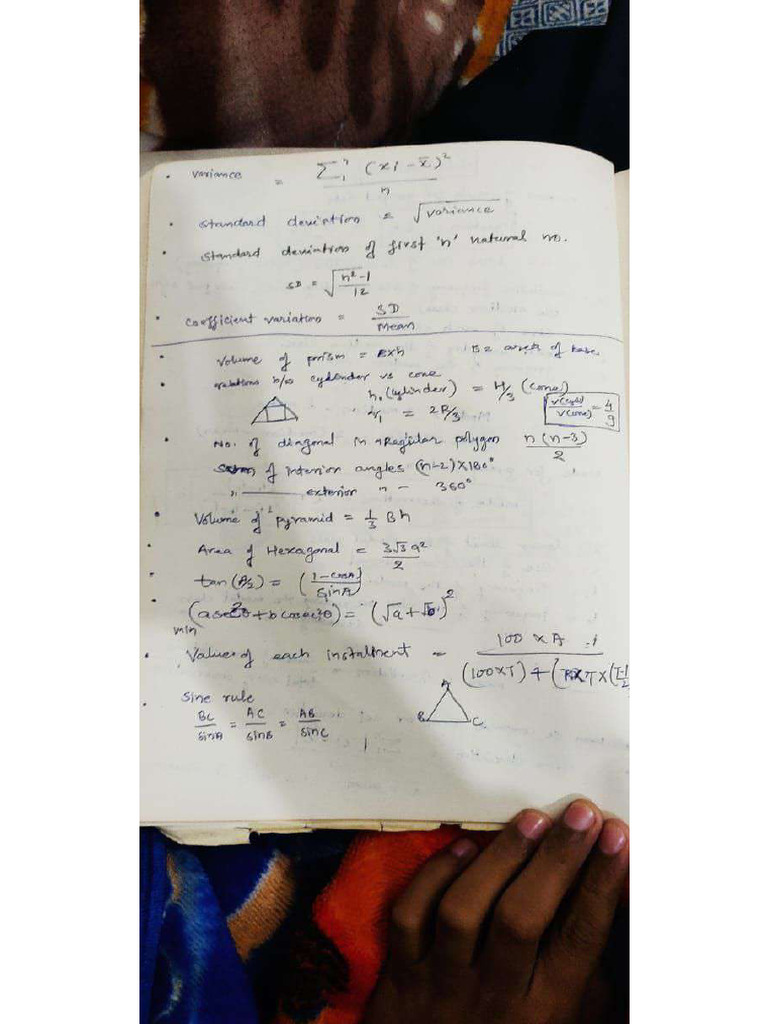 • Variance = Σ₁ⁿ (xi - x̄)² / n
• Standard deviation = √variance
• Standard deviation of first 'n' natural no.
SD = √(n²-1 / 12)
• Coefficient variation = SD / Mean
• Volume of prism = B×h B = area of base
• relations b/w cylinder vs cone
h, (cylinder) = H/3 (cone)
r₁ = 2R/3
V(cyli) / V(cone) = 4/9
• No. of diagonal in Regular polygon n(n-3) / 2
Sum of interior angles (n-2)×180°
" exterior " - 360°
• Volume of pyramid = 1/3 Bh
• Area of Hexagonal = 3√3 a² / 2
• tan(A/2) = (1-cosA / sinA)
• (a sec²θ + b cosec²θ) = (√a + √b)²
min
• Value of each instalment = 100 × A / (100×T) + (R×T×(T-1/2
• Sine rule
BC/sinA = AC/sinB = AB/sinC
A
B C